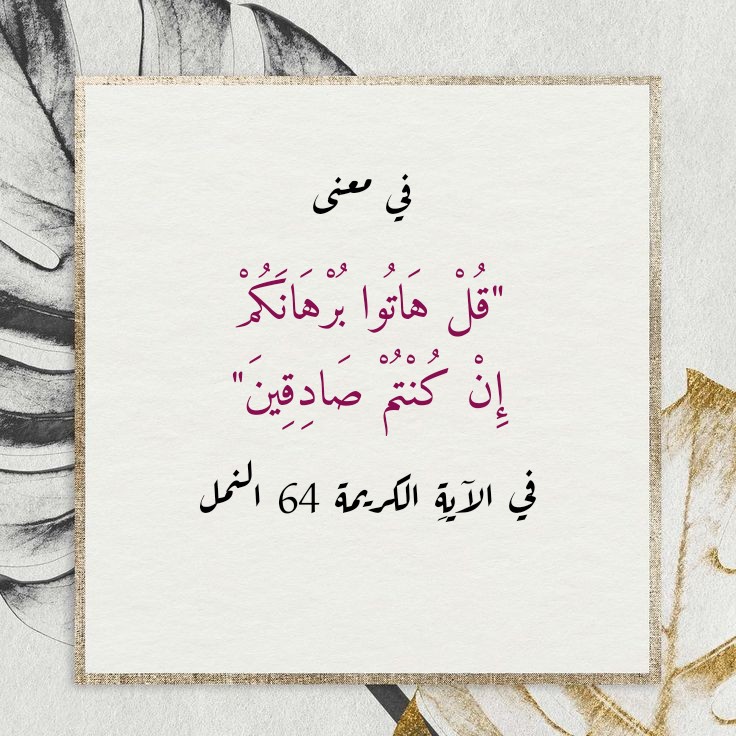 في معنى
"قُلْ هَاتُوا بُرْهَانَكُمْ
إِنْ كُنْتُمْ صَادِقِينَ"
في الآيةِ الكريمة 64 النمل